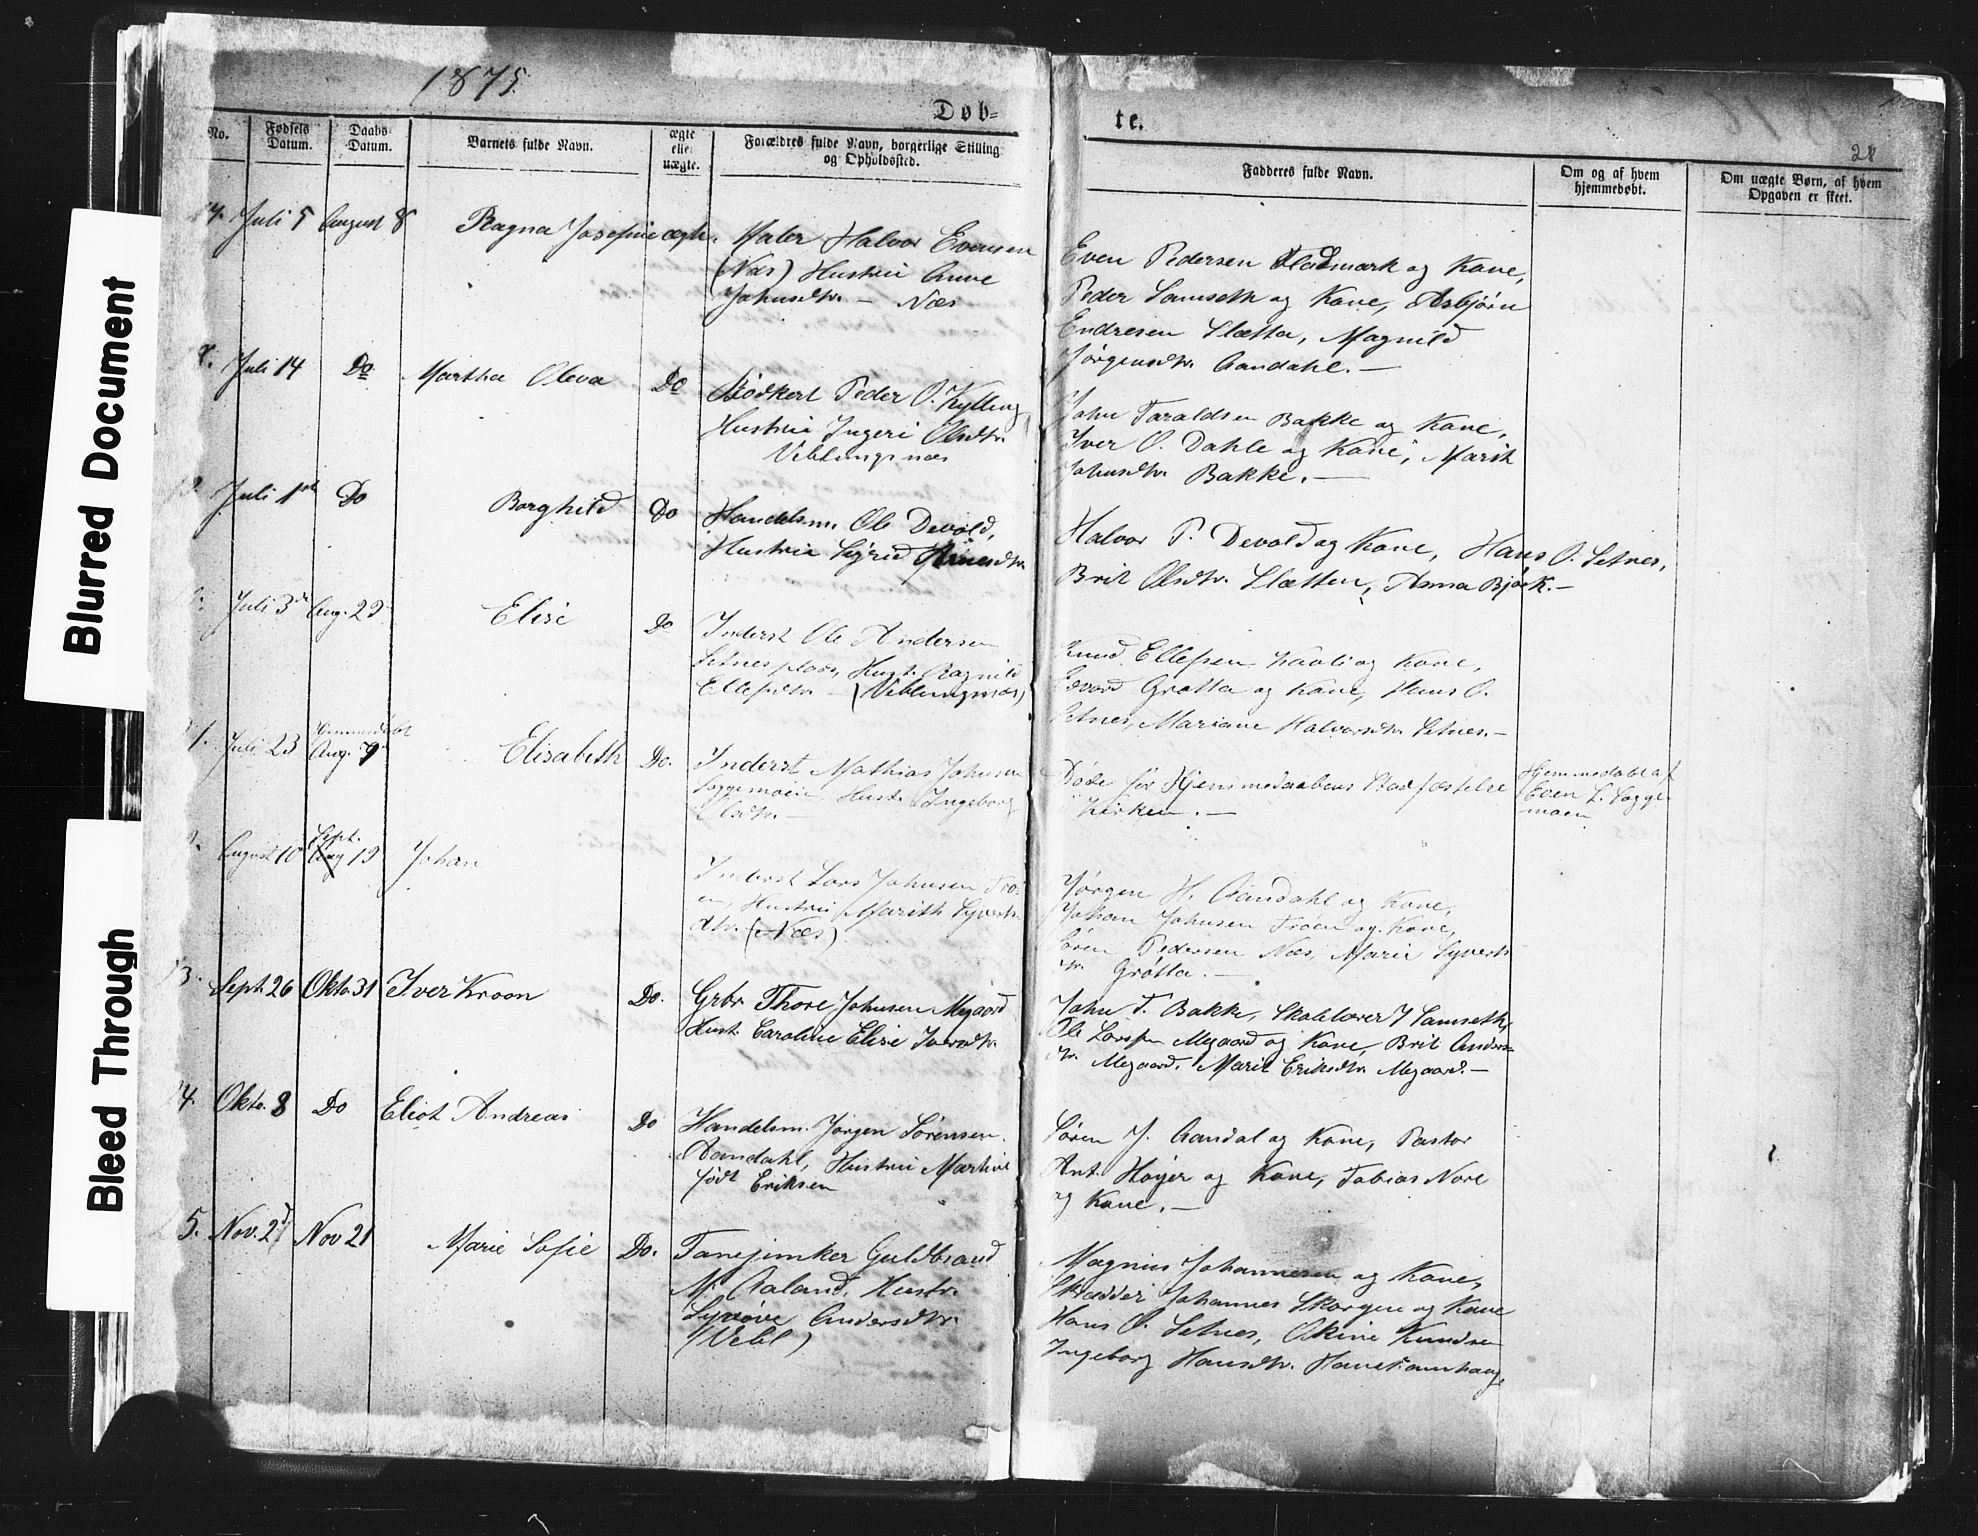 1875.
Døb=
te.
28
No.
Fødsels
Datum.
Daabs
Datum.
Barnets fulde Navn.
ægte
elle
uægte.
Forældres fulde Navn, borgerlige Stilling
og Opholdssted.
Fadderes fulde Navn.
Om og af hvem
hjemmedøbt.
Om uægte Børn, af hvem
Opgaven er skeet.
7. Juli 5 August 8 Ragna Josefine ægte. Maler Halvor Evensen
(Næs) Hustru Anne
Johnsdtr. — Næs
Even Pedersen Fladmark og Kone,
Peder Samseth og Kone, Asbjørn
Endresen Slætta, Magnild
Jørgensdtr. Aandahl. —
8. Juli 14 Do Martha Oleva Do Bødkert Peder O. Kylling
Hustru Ingeri Olsdtr.
Veblungsnæs
John Taraldsen Bakke og Kone,
Iver O. Dahle og Kone, Marit
Johnsdtr. Bakke. —
Juli 1st Do Borghild Do Handelsm. Ole Devold,
Hustru Sigrid Arnesdtr.
Halvor P. Devold og Kone, Hans O. Setnes,
Brit Olsdtr. Slætten, Anna Bjørk. —
Juli 3d Aug. 29 Elise Do Inderst Ole Andersen
Setnesplads, Hust. Ragnild
Ellefsdtr. — (Veblungsnæs)
Knud Ellefsen Kavli og Kone,
Edvard Grøtta og Kone, Hans O.
Setnes, Mariane Halvorsdtr. Setnes. —
1. Juli 23 Hjemmedøbt
Aug. 9 Elisabeth Do. Inderst Mathias Johnsen
Soggemoen Hust. Ingeborg
Olsdtr. —
Døde før Hjemmedaabens Stadfæstelse
i Kirken. —
Hjemmedøbt af
Even L. Sogge-
moen
August 10 Sept.
Aug 19 Johan
Inderst Lars Johnsen Trø-
en, Hustru Marith Syverts-
dtr. (Næs)
Jørgen H. Aandahl og Kone,
Johan Johnsen Trøen og Kone,
Søren Pedersen Næs, Marie Syverts-
dtr. Grøtta. —
3. Sept. 26 Okto. 31 Iver Kroon Do. Grbr Thore Johnsen Mgaard
Hust. Caroline Elise Iversdtr.
John T. Bakke, Skolelærer J Samseth,
Ole Larsen Mgaard og Kone, Brit Anders-
dtr. Mgaard, Marit Eriksdtr. Mgaard. —
4. Okto. 8 Do Eliot Andreas Do Handelsm. Jørgen Sørensen
Aandahl, Hustru Martine
født Eriksen
Søren J. Aandal og Kone, Pastor
Ant. Høyer og Kone, Tobias Nore
og Kone. —
5. Nov. 2d Nov 21 Marie Sofie Do. Tanejunker Guldbrand
M. Aaland, Hustr.
Synøve Andersdtr.
(Vebl)
Magnus Johannesen og Kone,
Skrædder Johannes Skorgen og Kone
Hans O. Setnes, Oline Knudsen
Ingeborg Hansdtr.
Blurred Document
Bleed Through